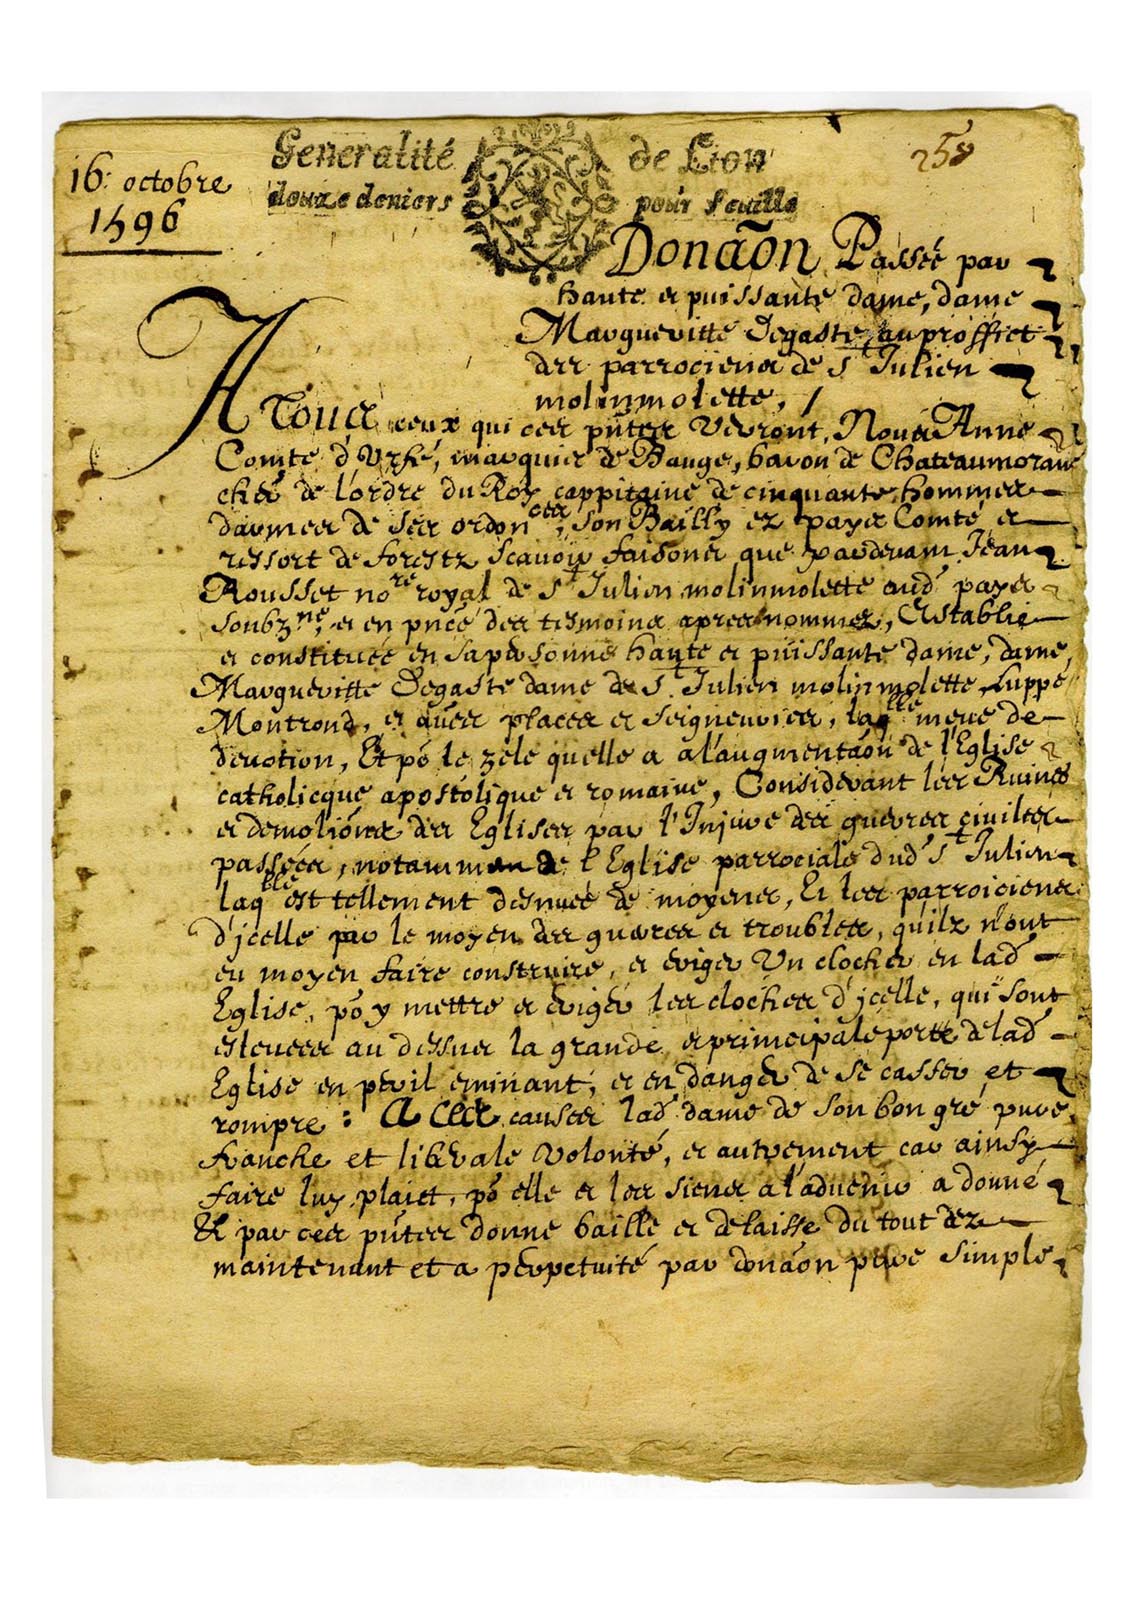 Generalité de Lion
258
16: octobre
1596
douze deniers pour feuille
Donaõn Passéé par
haute et puissante dame, dame
Margueritte Degaste au proffict
des parrociens de St Julien
molinmolette, /
A Tous ceux qui ces pñtes verront, Nous Anne
Comte d'Urfé, marquis de Bauge, baron de Chateaumorand
cher de lordre du Roy cappitaine de cinquante hommes
darmes de ses ordonces, son Bailly ez pays Comté et
ressort de forestz scavoir faisons que pardevant Jean
Rousset nore royal de St Julien molinmolette aud pays
soubzne, et en pñce des tesmoins apres nommez, Establie
et constituéé en sa personne haute et puissante dame, dame,
Margueritte Degaste dame de St Julien molinmolette, Luppe
Montrond, et autres places et seigneuries, laqlle meue de
devotion, Et po le zele quelle a a laugmentaõn de l'Eglise
catholicque apostolique et romaine, Considerant les Ruines
et demolions des Eglises par l'Injure des guerres civilles
passéés, notamment de l'Eglise parrociale dud St Julien
laqlle est tellement desnuéé de moyens, Et les parroiciens
d'jcelle par le moyen des guerres et troubles, quilz n'ont
eu moyen faire construire, et eriger Un clocher en lad
Eglise, po y mettre et eriger les cloches d'jcelle, qui sont
esleuees au dessus la grande et principale porte de lad
Eglise en peril eminant, et en danger de se casser et
rompre : A Ces causes lad dame de son bon gré pure
franche et liberale volonté, et autrement car ainsy
faire luy plaict, po elle et les siens a l'advenir a donné
Et par ces pñtes donne baille et delaisse du tout dez
maintenant et a perpetuité par donaõn pure simple